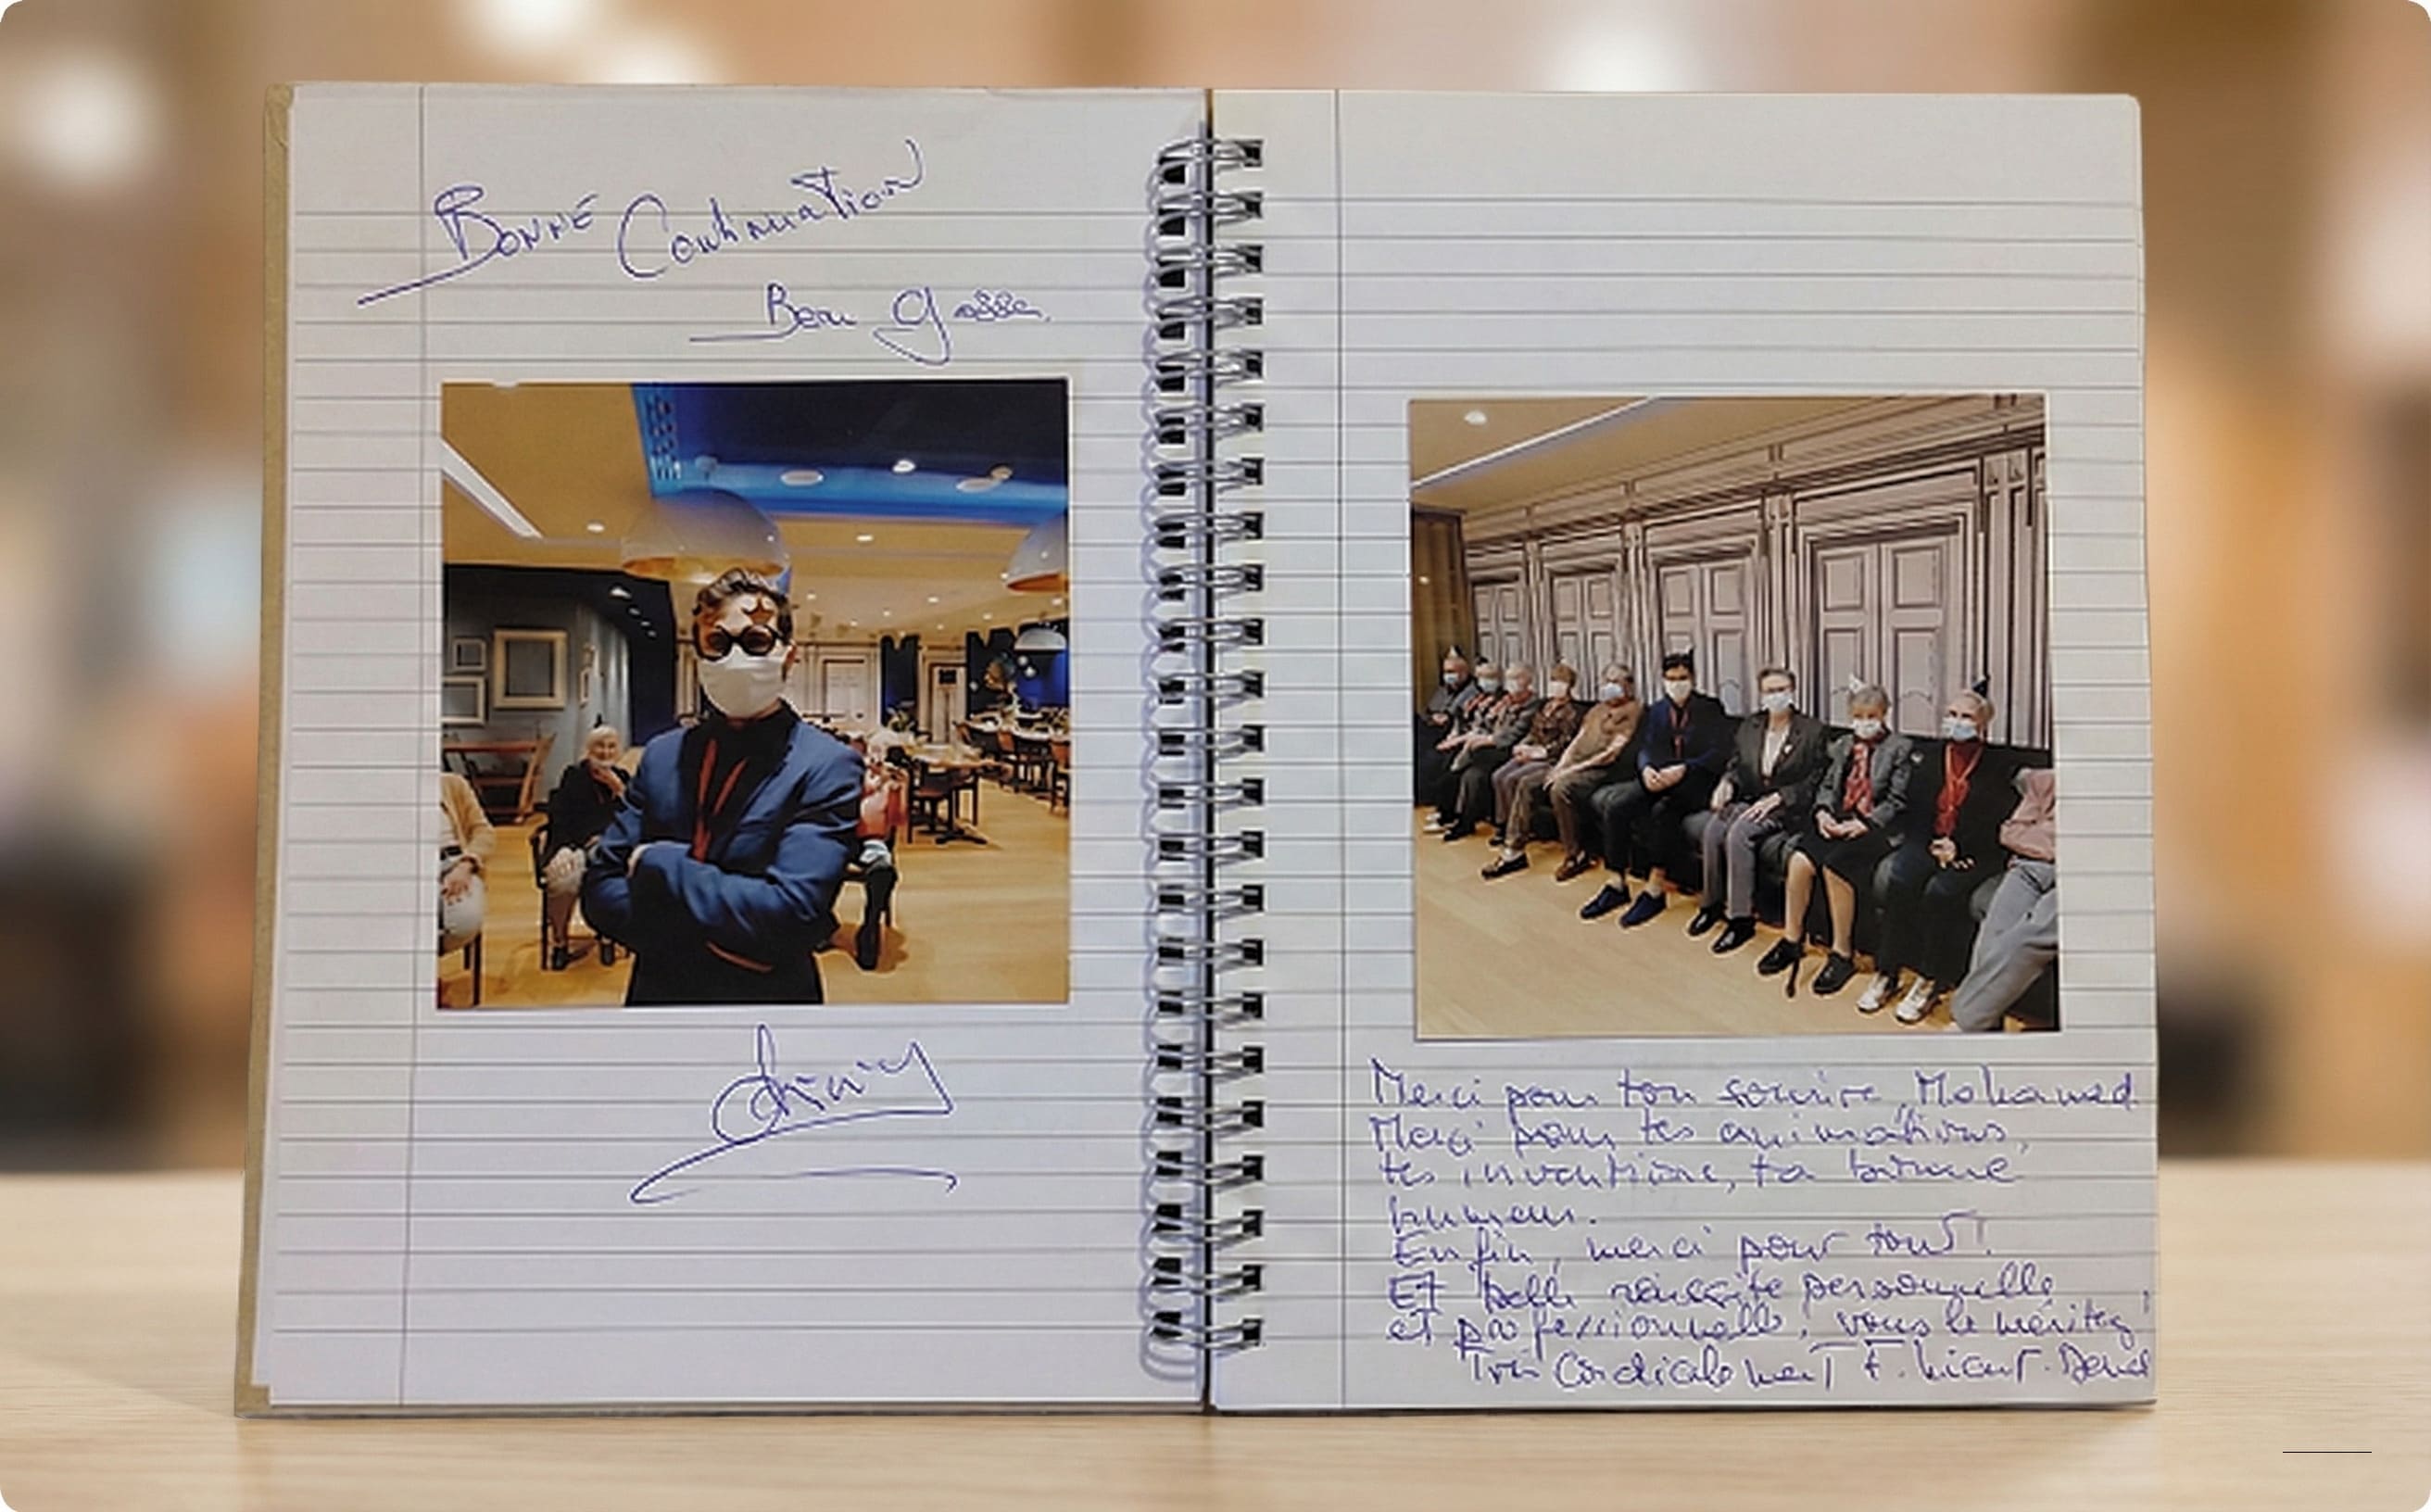 Bonne Continuation
Beau gosse.
Merci pour ton sourire, Mohamed
Merci pour tes animations,
tes inventions, ta bonne
humeur.
Enfin, merci pour tout!
Et belle réussite personnelle
et professionnelle, vous le méritez!
Très Cordialement F.